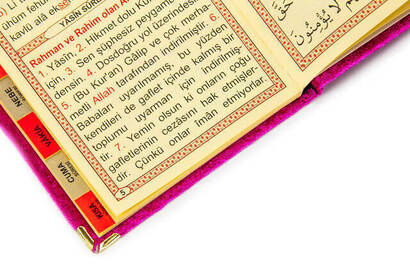 ühüm fehder
kavlü alâ eks
YÂSİN SÛRE
Rahman ve Rahîm olan A
1. Yâsîn. 2. Hikmet dolu Kur
için, 3. Sen şüphesiz peygam
sin. 4. Dosdoğru yol üzerindesin
5. (Bu Kur'an) Gâlip ve çok merha-
metli Allah tarafından indirilmiştir. 6.
Babaları uyarılmamış, bu yüzden
kendileri de gaflet içinde kalmış bir
toplumu uyarman için indirilmiş-
tir. 7. Yemin olsun ki onların çoğu
gafletlerinin cezâsını hak etmişler-
dir. Çünkü onlar îmân etmiyorlar.
5
NEBE
VAKIA
CUMA
KISA
لَا يُؤْمِنُونَ